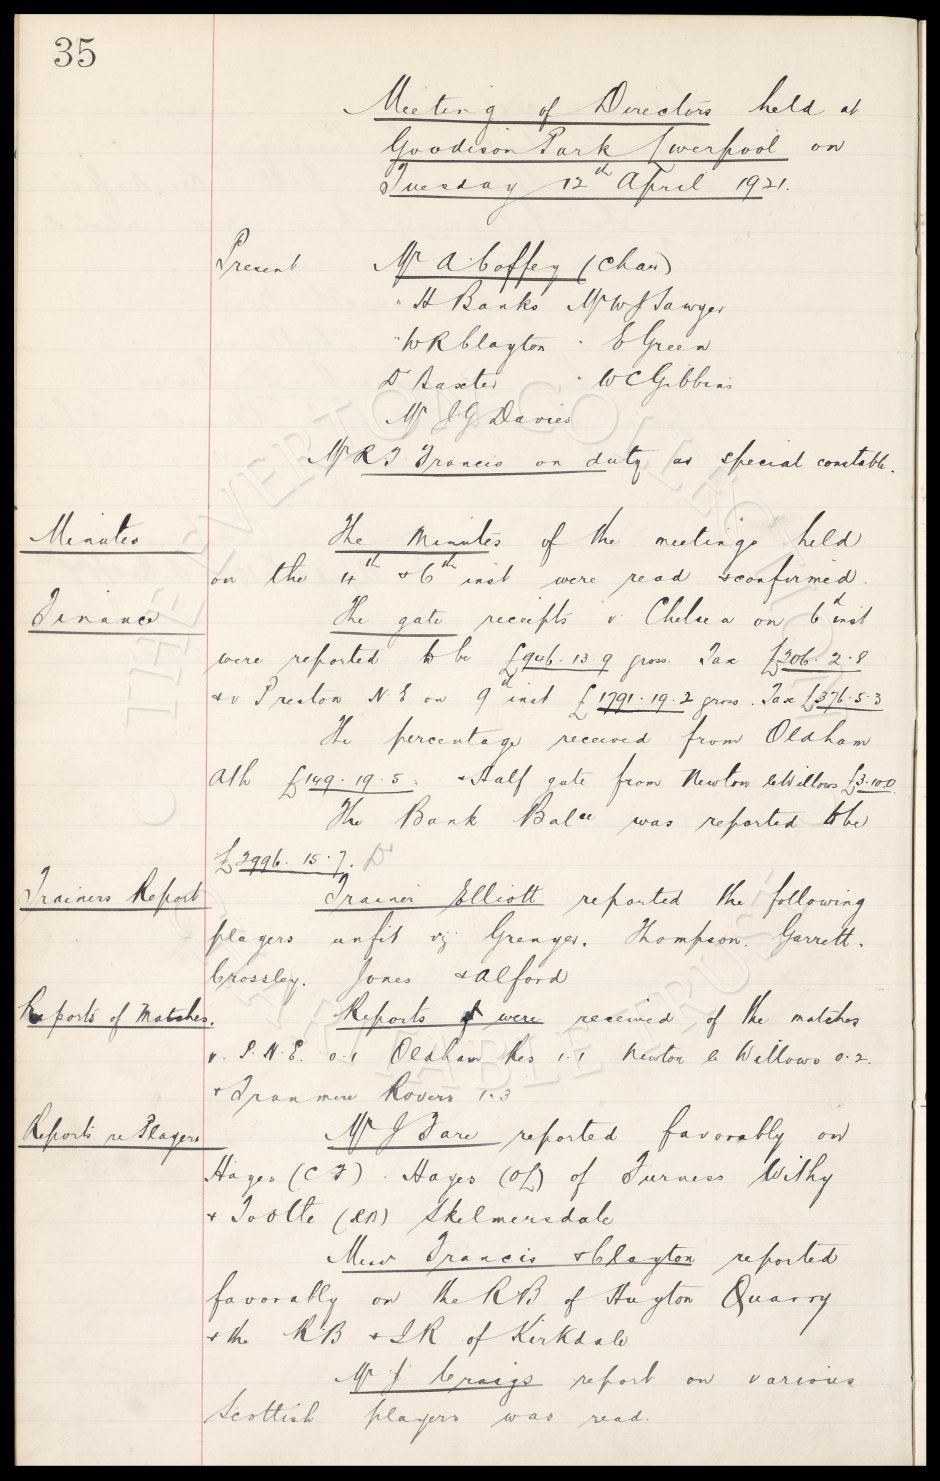 35
Meeting of Directors held at
Goodison Park Liverpool on
Tuesday 12th April 1921.
Present Mr A. Coffey (Chair)
" H Banks Mr W J Sawyer
" W R Clayton " E Green
Dr Baxter " W C Gibbins
Mr J G Davies
Mr R T Francis on duty as special constable.
Minutes The Minutes of the meetings held
on the 4th & 6th inst were read & confirmed.
Finance The gate receipts v Chelsea on 6th inst
were reported to be £946.13.9 gross. Tax £206.2.8
& v Preston N.E on 9th inst £1791.19.2 gross. Tax £376.5.3
The percentage received from Oldham
Ath £149.19.5. & Half gate from Newton le Willows £3.10.0.
The Bank Balce was reported to be
£2996.15.7. Dr
Trainers Report Trainer Elliott reported the following
players unfit viz Grenyer. Thompson. Garrett.
Crossley. Jones & Alford
Reports of Matches. Reports of were received of the matches
v. P.N.E. 0.1 Oldham Res 1.1 Newton le Willows 0.2.
& Tranmere Rovers 1.3
Reports re Players Mr J Fare reported favorably on
Hayes (C F). Hayes (OL) of Furness Withy
& Tootle (RB) Skelmersdale
Messrs Francis & Clayton reported
favorably on the RB of Huyton Quarry
& the RB & IR of Kirkdale
Mr J Craigs report on various
Scottish players was read.
© THE EVERTON COLLECTION
CHARITABLE TRUST